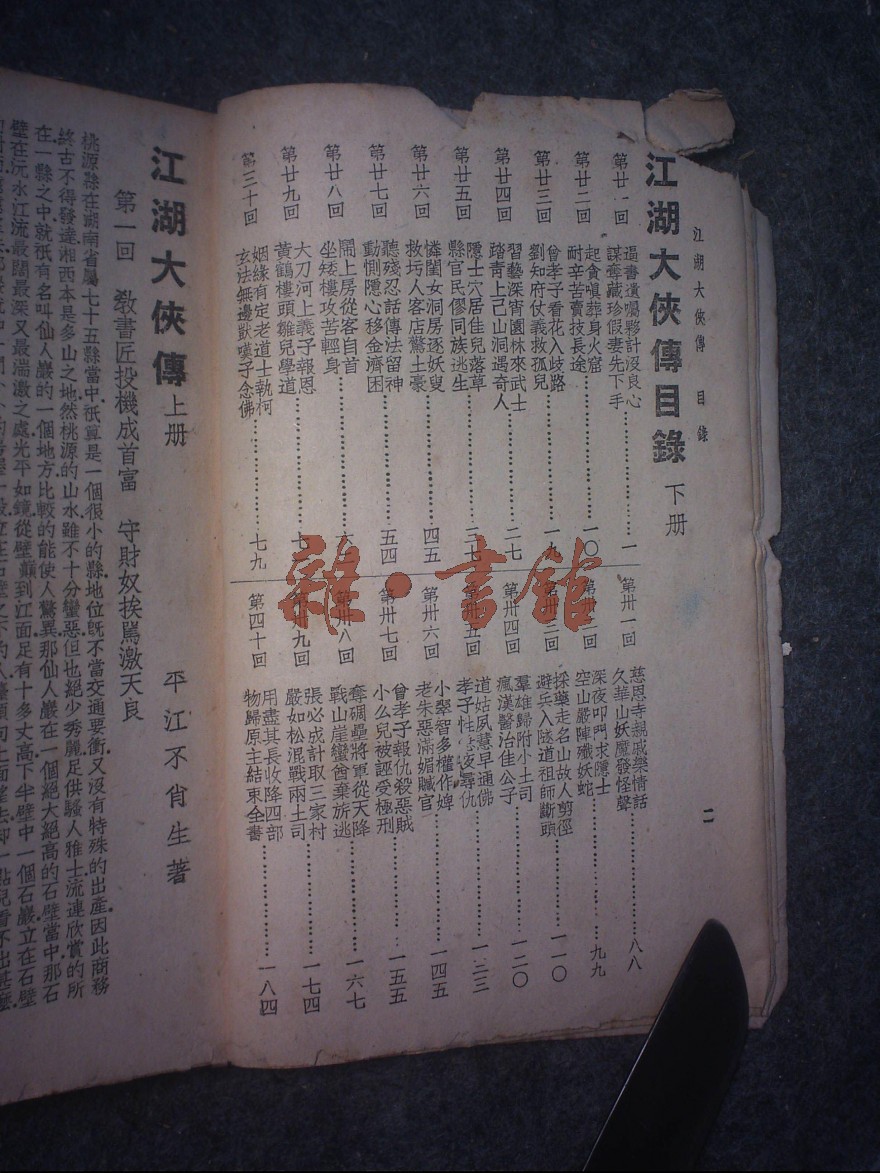 江湖大俠傳　目錄
江湖大俠傳目錄　下册
第廿一回　逼書遺囑夥計沒良心
謀奪藏珍假妻先下手……一
第廿二回　起貪嗔葬身火窟
耐辛苦賣技長途……一〇
第廿三回　曾孝子看花入歧路
劉知府仗義救孤兒……一九
第廿四回　習藝深宵園林來武士
踏青上己山洞遇奇人……二七
第廿五回　隱士穴居佳兒落草
縣官民僇同族逃生……三七
第廿六回　憐閨女洞房逐妖叟
救坊人客店驚土豪……四五
第廿七回　聽殘忍話傳法留神
動惻隱心移金濟困……五四
第廿八回　鬧上房從容自首
坐矮樓攻苦輕身……六
第廿九回　大刀河上義子報恩
黃鶴樓頭雛兒學道……七一
第三十回　姻緣有定老道士執柯
玄法無邊獃嘆子念佛……七九
第卅一回　慈恩寺親戚樂情話
久華山妖魔發怪聲……八八
第卅二回　深夜叩門求隱士
空山嚴陣殲妖蛇……九九
第卅三回　採藥走名山故人剪徑
避兵入隧道祖師斷頭……一一〇
第卅四回　羣雄歸附小土司
瘋漢醫治佳公子……一二〇
第卅五回　道姑夙慧早通佛
孝子性急夜尋仇……一三三
第卅六回　小翠智多權作婢
老朱惡滿媚贓官……一四五
第卅七回　曾孝子報仇殺惡賊
小么兒被誣受極刑……一五五
第卅八回　奪碉壘將軍從天降
戰山崖蠻酋棄旂逃……一六七
第卅九回　張必成計取三家村
嚴如松混戰兩土司……一七四
第四十回　用盡其長收降四部
物歸原主結束全書……一八四
二
雜·書館
江湖大俠傳　上册
平江不肖生著
第一回　敎書匠投機成首富　守財奴挨罵激天良
桃源縣在湖南省屬七十五縣當中祇算是一個很小的縣地位旣不當交通要衝又沒有特殊的出產因此商務
終古不得發達湘西本是多山之地然桃源的山水雖不十分蠻惡但也絕少秀麗足供騷人雅士流連欣賞的所
在一縣之中就祇有名叫仙人巖的一個地方比較的能使人驚異那仙人巖在一個絕大絕高的石壁當中那石
壁在沅水江流最闊最深又最湍激之處光平如鏡從壁巔到江面足有十多丈高下半壁中一個石巖立在石壁